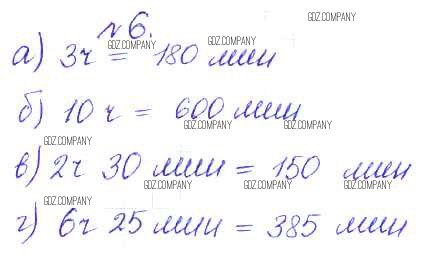 GDZ.COMPANY
№6.
GDZ.COMPANY GDZ.COMPANY
а) 3ч = 180 мин
б) 10 ч = 600 мин
GDZ.COMPANY GDZ.COMPANY
GDZ.COMPANY
в) 2ч 30 мин = 150 мин
GDZ.COMPANY GDZ.COMPANY GDZ.COMPANY
GDZ.COMPANY
г) 6ч 25 мин = 385 мин